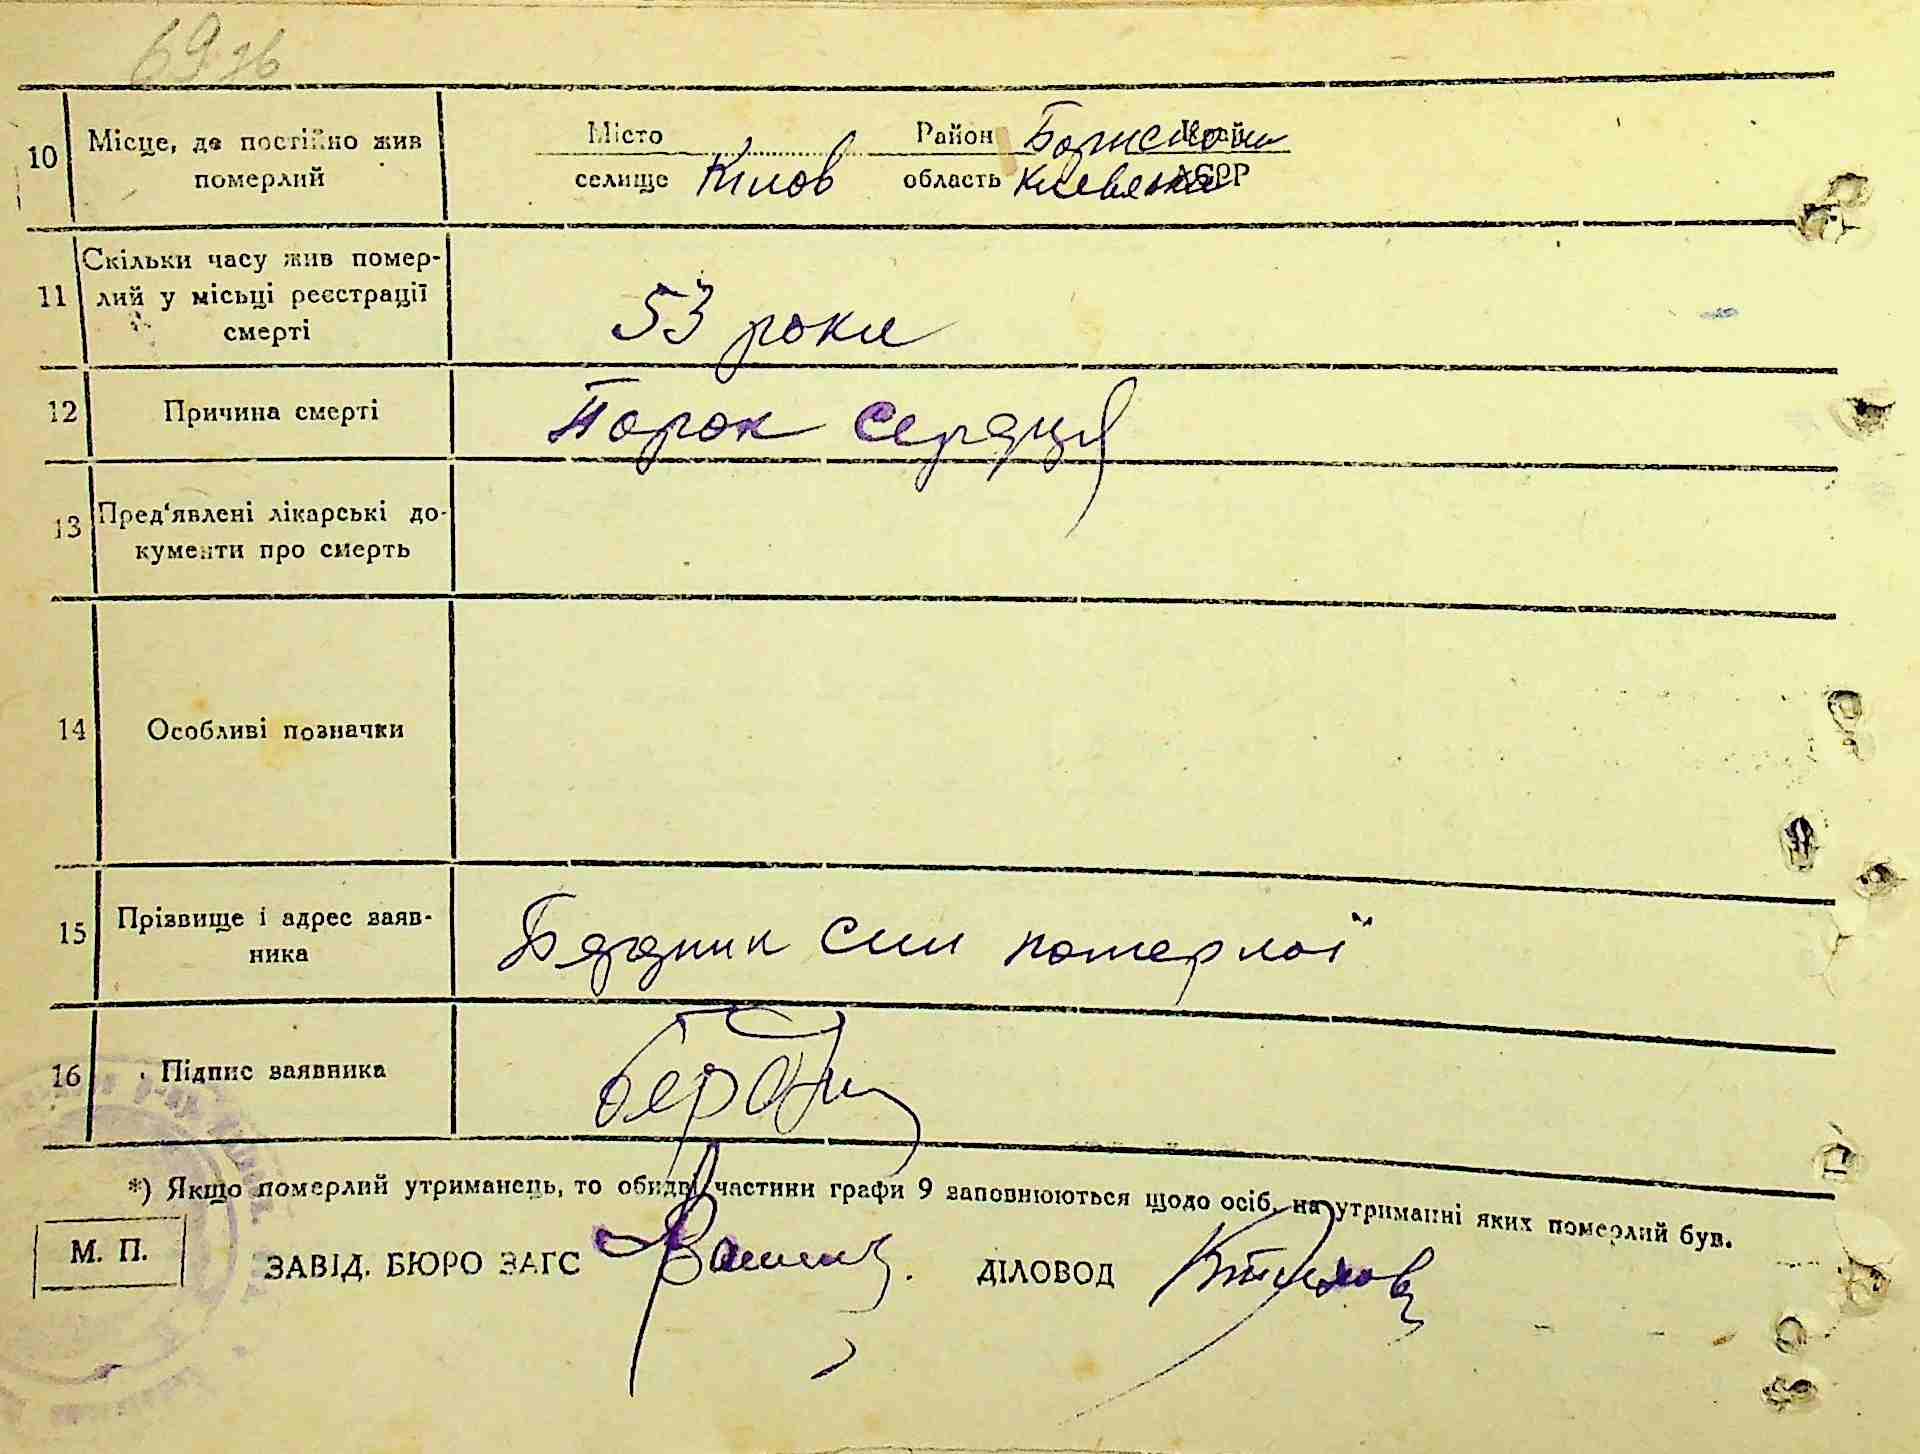 69 зв
10 Місце, де постійно жив
померлий
Місто Район Бориспол Край
селище Кийов область Киевська АСРР
11 Скільки часу жив помер-
лий у місьці реєстрації
смерті
53 роки
12 Причина смерті Порок сердця
13 Пред'явлені лікарські до-
кументи про смерть
14 Особливі позначки
15 Прізвище і адрес заяв-
ника
Бердник син померлої
16 Підпис заявника
*) Якщо померлий утриманець, то обидві частини графи 9 заповнюються щодо осіб, на утриманні яких померлий був.
М. П.
ЗАВІД. БЮРО ЗАГС ДІЛОВОД